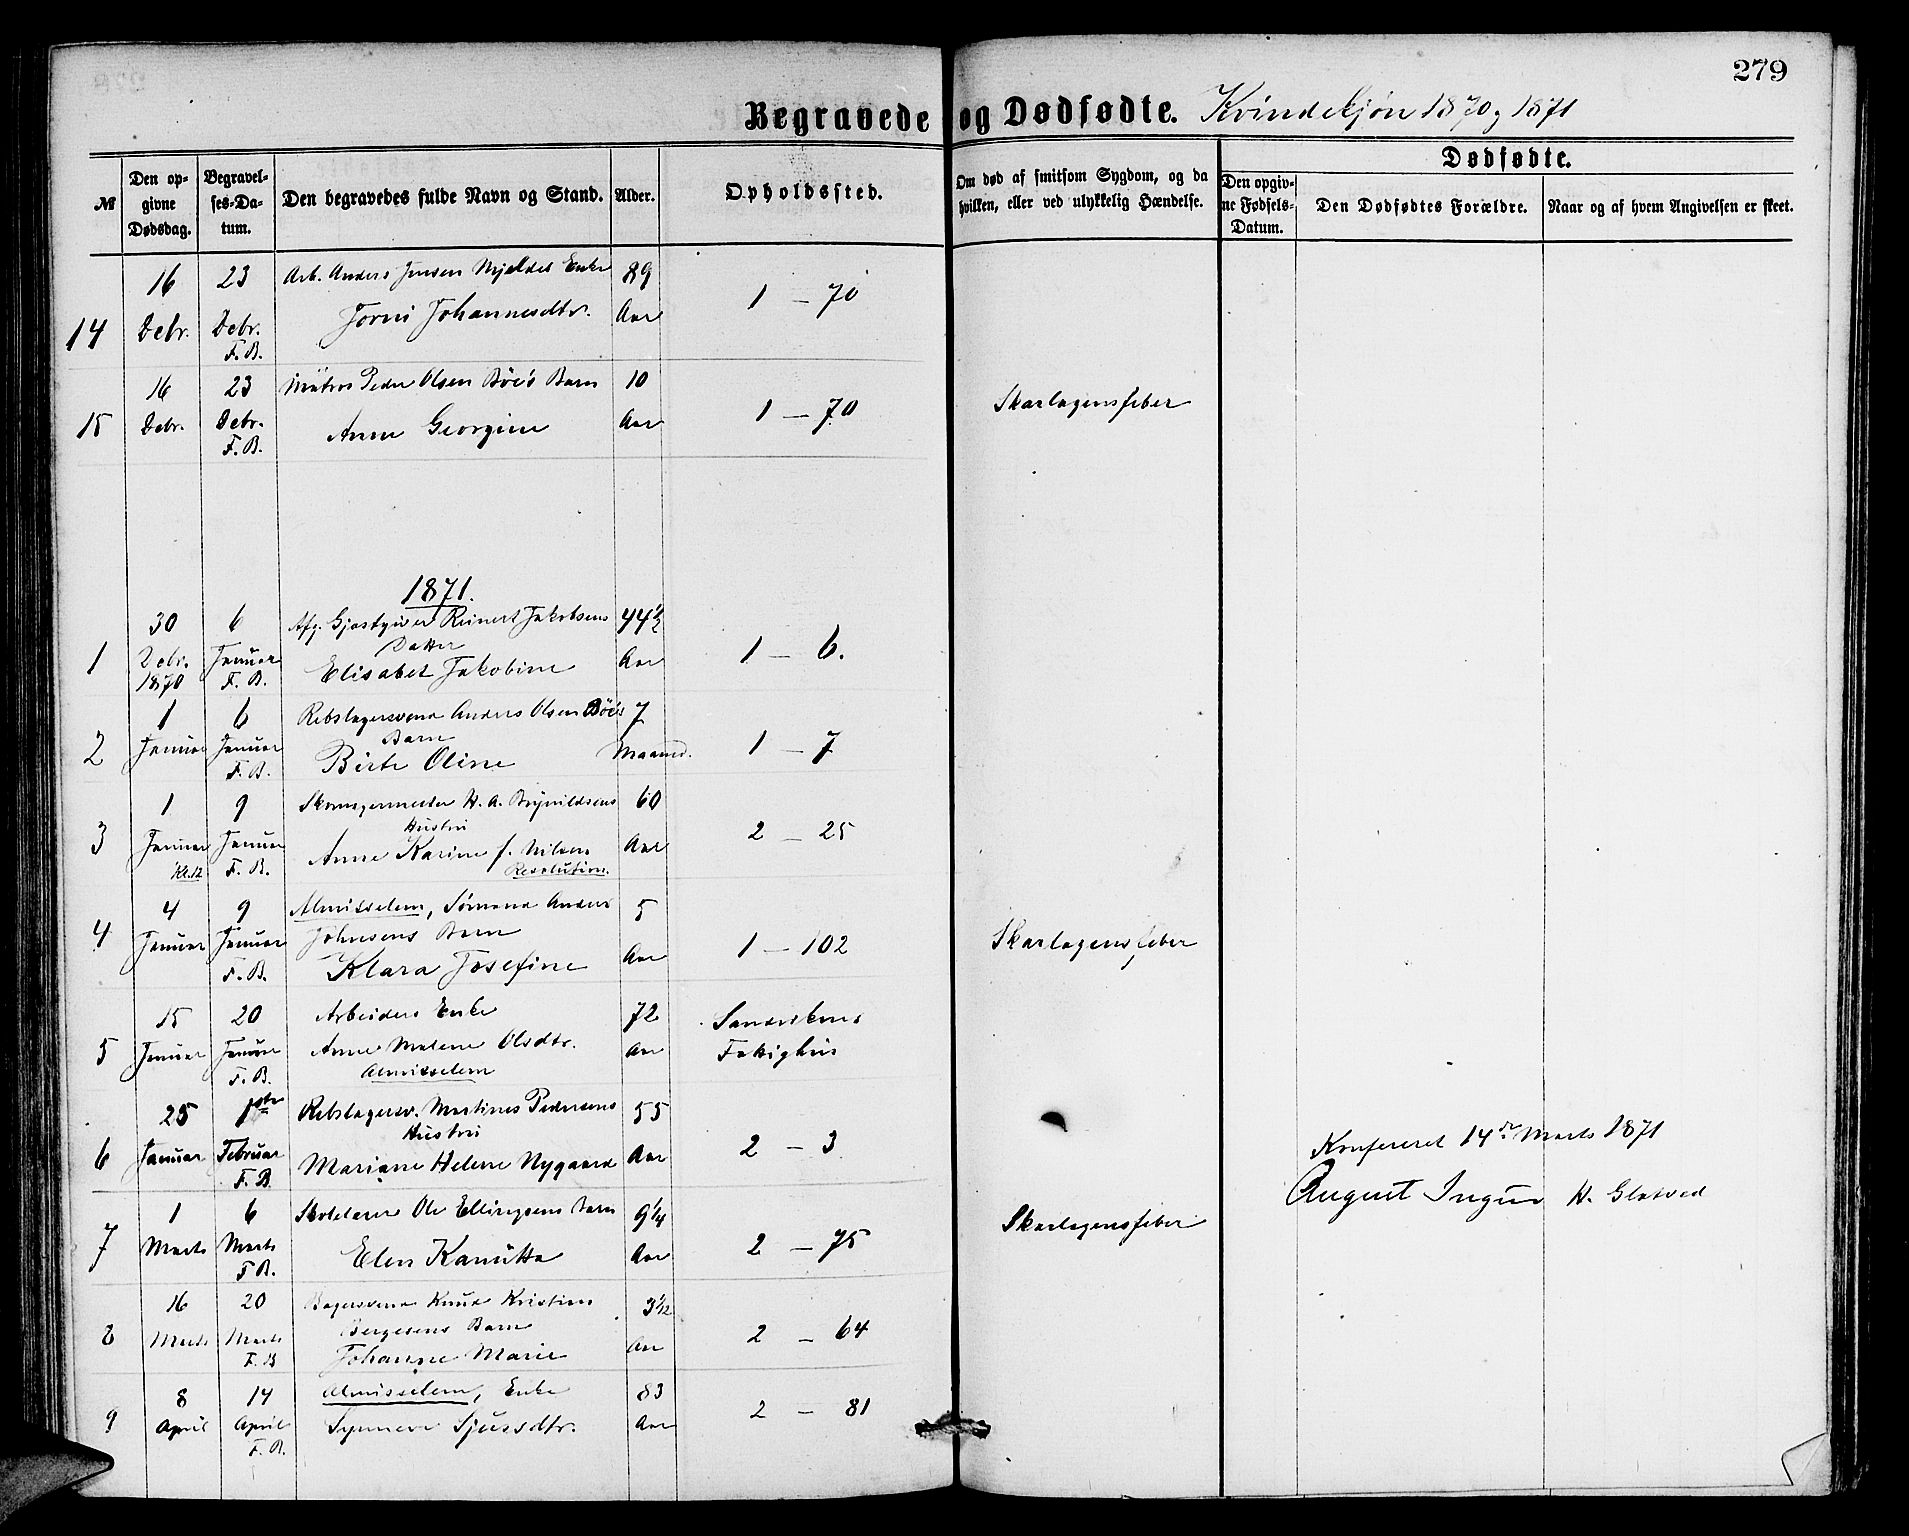 279
Begravede og Dødfødte. Kvindekjøn 1870 og 1871
№
Den opgivne Dødsdag.
Begravelses-Datum.
Den begravedes fulde Navn og Stand.
Alder.
Opholdssted.
Om død af smitsom Sygdom, og da hvilken, eller ved ulykkelig Hændelse.
Dødfødte.
Den opgivne Fødsels-Datum.
Den Dødfødtes Forældre.
Naar og af hvem Angivelsen er skeet.
14 16 Debr. 23 Debr. F. B. Arb. Anders Jensen Mjeldes Enke
Jorni Johannesdtr. 89 Aar 1 — 70
15 16 Debr. 23 Debr. F. B. Matros Peder Olsen Böe's Barn
Anne Georgine 10 Aar 1 — 70 Skarlagensfeber
1871.
1 30 Debr. 1870 6 Januar F. B. Afg. Gjæstgiver Reinert Jakobsens
Datter
Elisabet Jakobine 44½ Aar 1 — 6.
2 1 Januar 6 Januar F. B. Rebslagersvend Anders Olsen Böe's
Barn
Birte Oline 7 Maaned. 1 — 7
3 1 Januar Kl. 12 9 Januar F. B. Skomagermester H. A. Brynildsens
Hustru
Anne Karine f. Nilsen
Resolution. 60 Aar 2 — 25
4 4 Januar 9 Januar F. B. Almisselem, Sömand Anders
Johnsens Barn
Klara Josefine 5 Aar 1 — 102 Skarlagensfeber
5 15 Januar 20 Januar F. B. Arbeiders Enke
Anne Malene Olsdtr.
Almisselem 72 Aar Sandvikens
Fattighus
6 25 Januar 1ste Februar F. B. Rebslagersv. Martines Pedersens
Hustru
Mariane Helene Nygaard 55 Aar 2 — 3
Konfereret 14de Marts 1871
August H. Glatved
7 1 Marts 6 Marts F. B. Skolelærer Ole Ellingsens Barn
Elen Kamitta 9¼ Aar 2 — 75 Skarlagensfeber
8 16 Marts 20 Marts F. B. Bagersvend Knud Kristian
Bergesens Barn
Johanne Marie 3 1/12 Aar 2 — 64
9 8 April 14 April F. B. Almisselem, Enke
Synneve Sjursdtr. 83 Aar 2 — 81